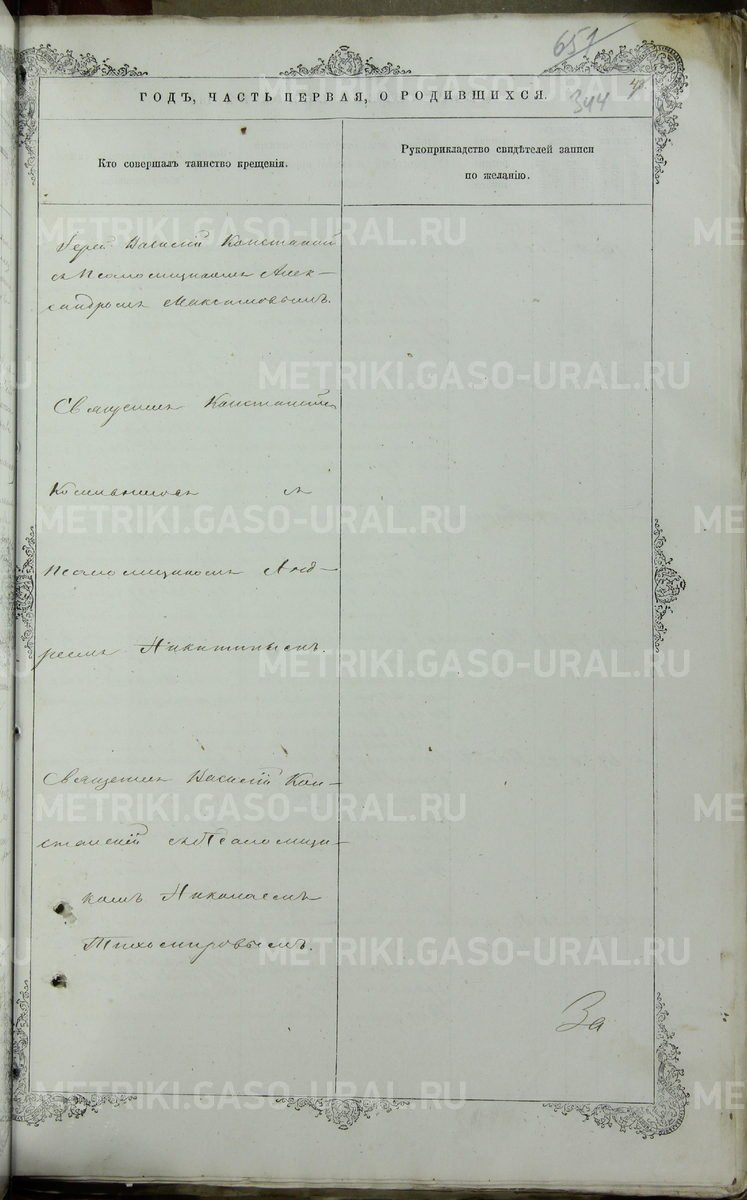 657
ГОДЪ, ЧАСТЬ ПЕРВАЯ, О РОДИВШИХСЯ.
344
Кто совершалъ таинство крещенія.
Рукоприкладство свидѣтелей записи
по желанію.
Іерей Василій
съ Псаломщикомъ Алек-
сандромъ Максимовымъ.
Священникъ
съ
псаломщикомъ Анд-
реемъ Никитинымъ.
Священникъ Василій Кон-
съ Псаломщи-
комъ Николаемъ
Тихомировымъ.
За
METRIKI.GASO-URAL.RU